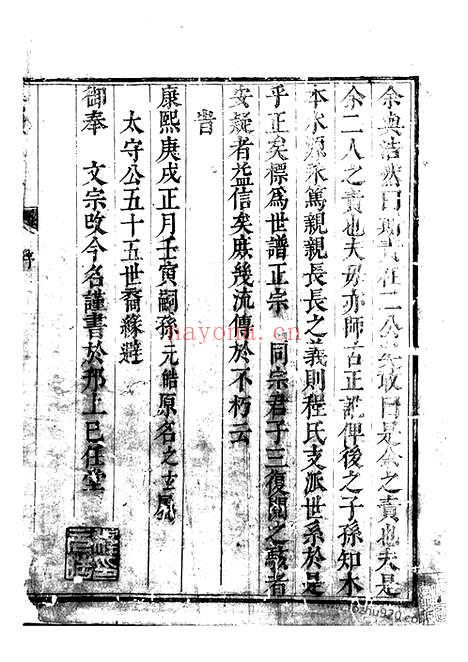 余與浩然曰玏責在二公矣敢曰是余之責也夫是
余二人之責也夫毋亦師古正訛俾後之子孫知木
本水源永篤親親長長之義則程氏支派世系於是
乎正矣標為世譜正宗　同宗君子三復閱之敁者
安疑者益信矣庶幾流傳於不朽云
旹
康熙庚戌正月壬寅嗣孫元皓原名之
太守公五十五世裔緣避
御奉　文宗改今名謹書於邗上巳任堂
nayona.cn